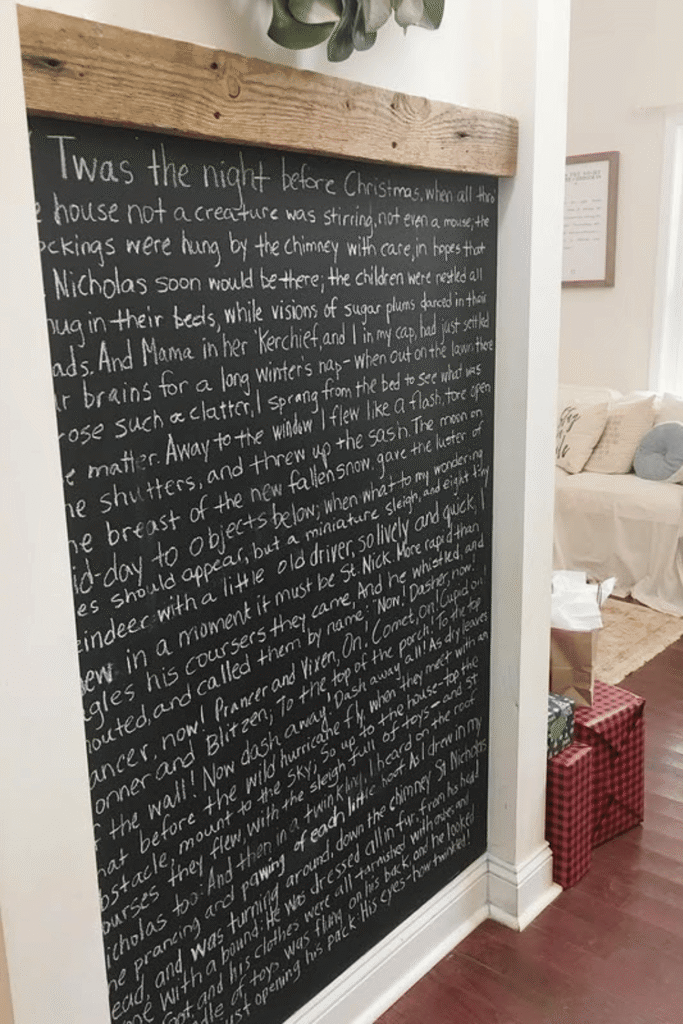 Twas the night before Christmas, when all thro'
house not a creature was stirring, not even a mouse; the
ockings were hung by the chimney with care, in hopes that
Nicholas soon would be there; the children were nestled all
nug in their beds, while visions of sugar plums danced in their
ads. And Mama in her 'Kerchief, and I in my cap, had just settled
r brains for a long winter's nap - when out on the lawn there
rose such a clatter, I sprang from the bed to see what was
e matter. Away to the window I flew like a flash, tore open
he shutters, and threw up the sash. The moon on
he breast of the new fallen snow, gave the luster of
id-day to objects below; when what to my wondering
es should appear, but a miniature sleigh, and eight tiny
eindeer with a little old driver, so lively and quick, I
ew in a moment it must be St Nick. More rapid than
agles his coursers they came, And he whistled, and
houted, and called them by name: "Now! Dasher, now!
ancer, now! Prancer and Vixen, On! Comet, on! Cupid on!
onner and Blitzen; To the top of the porch! To the top
f the wall! Now dash away! Dash away all! As dry leaves
hat before the wild hurricane fly, when they meet with an
bstacle, mount to the sky; So up to the house-top the
ourses they flew, with the sleigh full of toys - and St
icholas too: And then in a twinkling, I heard on the roof
he prancing and pawing of each little hoof. As I drew in my
ead, and was turning around, down the chimney St Nicholas
me with a bound: He was dressed all in fur, from his head
foot, and his clothes were all tarnished with ashes and
dle of toys was flung on his back, and he looked
ust opening his pack: His eyes - how twinkled!